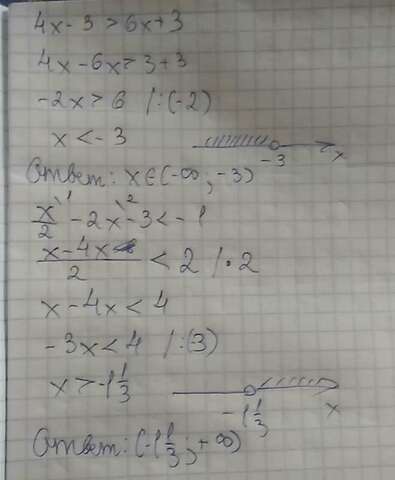 4x-3>6x+3
4x-6x>3+3
-2x>6 /:(-2)
x<-3
-3 x
Ответ: x∈(-∞;-3)
x\1/2 -2x\2-3<-1
x-4x/2 <2 /·2
x-4x<4
-3x<4 /:(3)
x>-1 1/3
-1 1/3 x
Ответ: (-1 1/3;+∞)